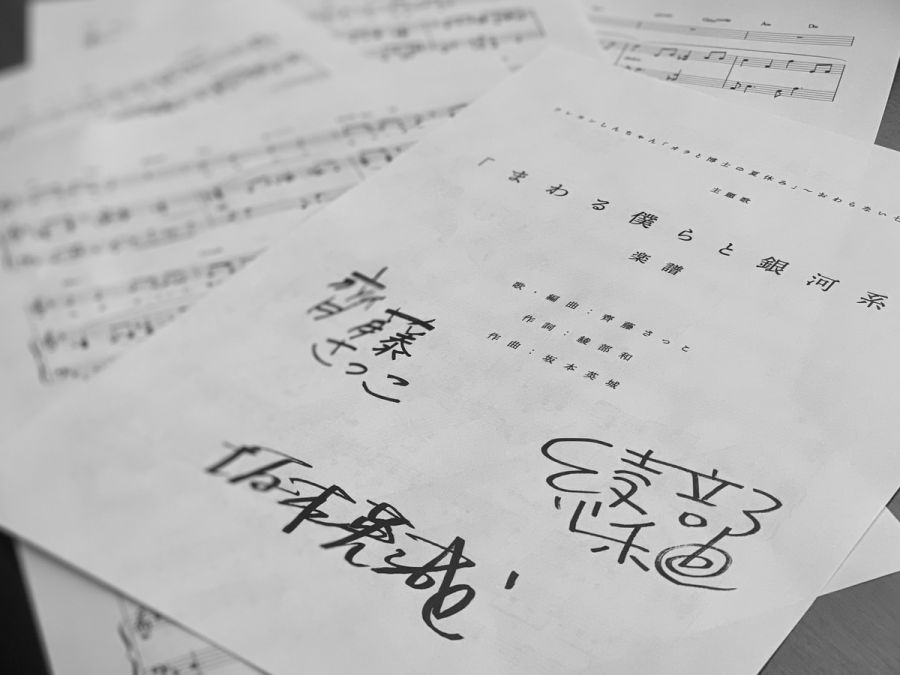 クレヨンしんちゃん「オラと博士の夏休み」～おわらない七
主題歌
「まわる僕らと銀河系
楽譜
歌・編曲：齊藤さっと
作詞：綾部和
作曲：坂本英城
齊藤
さっと
綾部
和
坂本英城